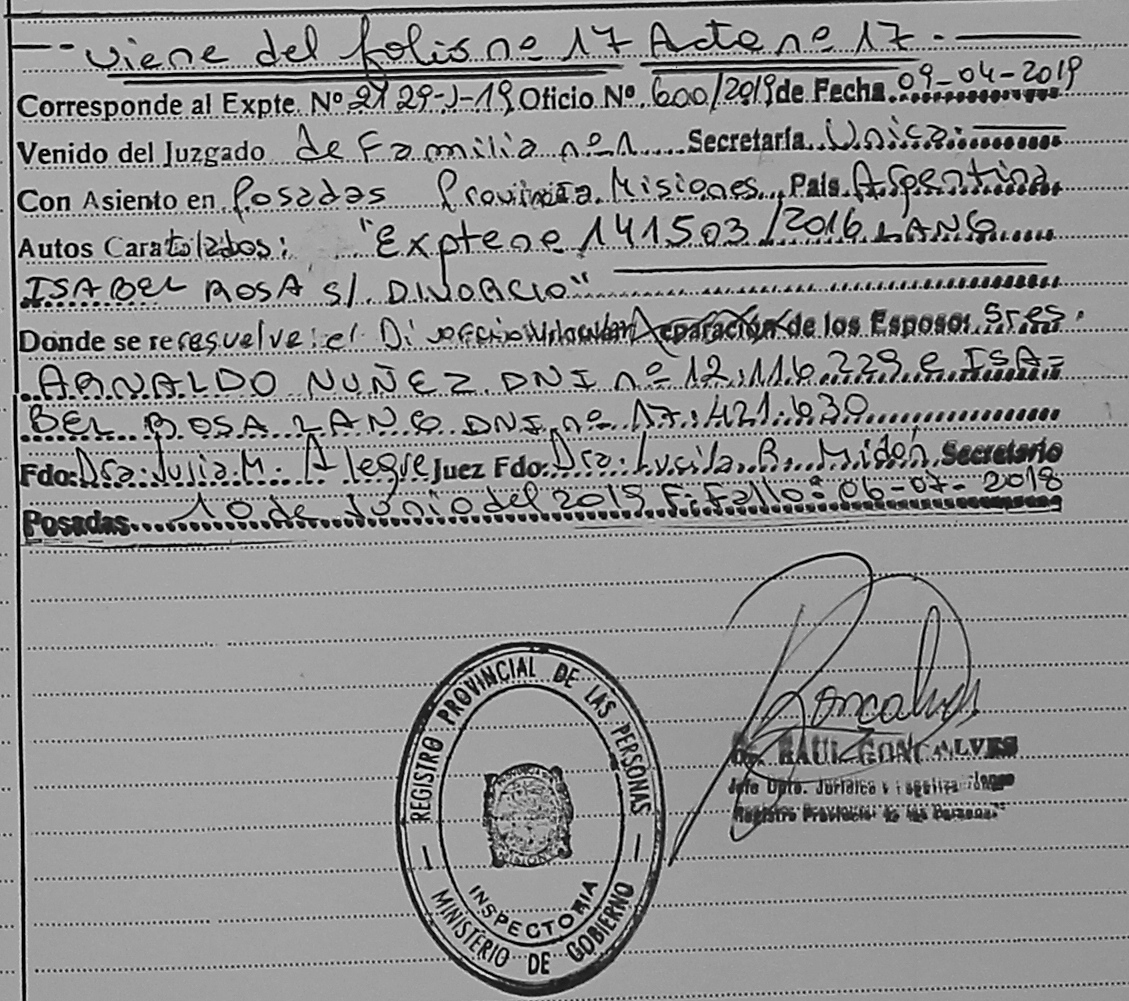 --viene del folio nº 17 Acta nº 17.
Corresponde al Expte. Nº 2729-J-19 Oficio Nº 600/2019 de Fecha 09-04-2019
Venido del Juzgado de Familia nº 1 Secretaría Unica:
Con Asiento en Posadas Provincia Misiones, País Argentina
Autos Caratolados: "Expte nº 141503/2016 LANG
ISABEL ROSA s/ DIVORCIO"
Donde se re resuelve: el Divorcio Vincular Separación de los Esposos Sres.
ARNALDO NUÑEZ DNI nº 12.116.229 e ISA=
BEL ROSA LANG DNI nº 17.421.630
Fdo: Dra: Julia M. Alegre Juez Fdo: Dra: Lucila R. Midón Secretario
Posadas 10 de Junio del 2019 F. Fallo: 06-07-2018
REGISTRO PROVINCIAL DE LAS PERSONAS
INSPECTORIA
MINISTERIO DE GOBIERNO
Goncalves
Dr. RAUL GONCALVES
Jefe Dpto. Jurídica y Legalizaciones
Registro Provincial de las Personas